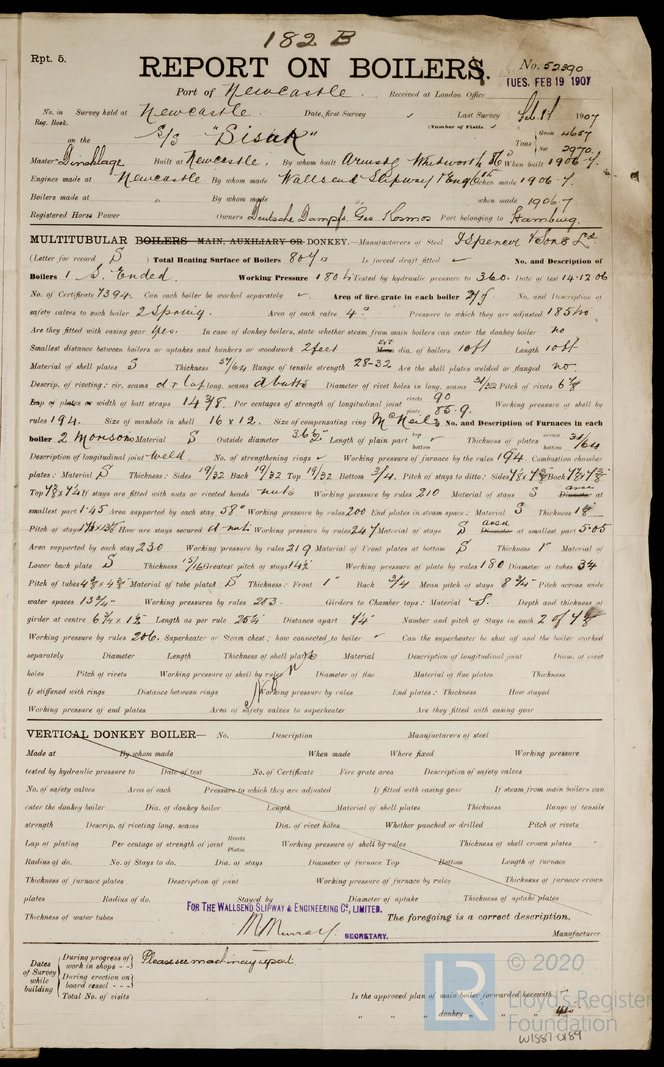 182 B
Rpt. 5.
REPORT ON BOILERS.
No. 52390
TUES. FEB 19 1907
Port of Newcastle. Received at London Office
No. in Survey held at Newcastle. Date, first Survey Last Survey Feb 1907
Reg. Book. (Number of Visits
on the S/S "Sisak" Gross 4657
Tons
Net 2970
Master Built at Newcastle. By whom built Armstg Whitworth & Co When built 1906-7.
Engines made at Newcastle. By whom made Wallsend Slipway & Eng Co Ltd when made 1906-7.
Boilers made at " By whom made " when made 1906.7
Registered Horse Power Owners Deutsche Dampfs. Ges Kosmos Port belonging to Hamburg.
MULTITUBULAR BOILERS MAIN, AUXILIARY OR DONKEY.—Manufacturers of Steel J Spencer & Sons Ld
(Letter for record S) Total Heating Surface of Boilers 807 Is forced draft fitted No. and Description of
Boilers 1 S. Ended. Working Pressure 180 lb Tested by hydraulic pressure to 360. Date of test 14.12.06
No. of Certificate 7394. Can each boiler be worked separately Area of fire grate in each boiler No. and Description of
safety valves to each boiler 2 Spring. Area of each valve 4 Pressure to which they are adjusted 185 lbs
Are they fitted with easing gear Yes. In case of donkey boilers, state whether steam from main boilers can enter the donkey boiler no
Smallest distance between boilers or uptakes and bunkers or woodwork 2 feet Mean dia. of boilers 10ft Length 10ft
Material of shell plates S Thickness 57/64 Range of tensile strength 28-32 Are the shell plates welded or flanged no.
Descrip. of riveting: cir. seams d r lap long. seams d butts Diameter of rivet holes in long. seams 31/32 Pitch of rivets
Lap of plates or width of butt straps 14 3/8. Per centages of strength of longitudinal joint rivets 90 Working pressure of shell by
plate 85.9.
rules 194. Size of manhole in shell 16 x 12. Size of compensating ring McNeil's No. and Description of Furnaces in each
boiler 2 Morison Material S Outside diameter 36 1/2 Length of plain part top bottom Thickness of plates crown bottom 31/64
Description of longitudinal joint weld. No. of strengthening rings Working pressure of furnace by the rules 194. Combustion chamber
plates: Material S Thickness: Sides 19/32 Back 19/32 Top 19/32 Bottom 3/4. Pitch of stays to ditto: Sides Back
Top If stays are fitted with nuts or riveted heads nuts Working pressure by rules 210 Material of stays S area Diameter at
smallest part 1.45 Area supported by each stay 58 Working pressure by rules 200 End plates in steam space: Material S Thickness
Pitch of stays How are stays secured d nuts Working pressure by rules 247 Material of stays S area Diameter at smallest part 5.05
Area supported by each stay 230 Working pressure by rules 219 Material of Front plates at bottom S Thickness 1" Material of
Lower back plate S Thickness 15/16 Greatest pitch of stays 14 1/2 Working pressure of plate by rules 180 Diameter of tubes 3 1/4
Pitch of tubes Material of tube plates S Thickness: Front 1" Back 3/4 Mean pitch of stays 8 3/4 Pitch across wide
water spaces 13 3/4 Working pressures by rules 203. Girders to Chamber tops: Material S. Depth and thickness of
girder at centre 6 3/4 x 1 1/2 Length as per rule 25 Distance apart 7 1/4 Number and pitch of Stays in each 2 of
Working pressure by rules 206. Superheater or Steam chest; how connected to boiler Can the superheater be shut off and the boiler worked
separately Diameter Length Thickness of shell plates Material Description of longitudinal joint Diam. of rivet
holes Pitch of rivets Working pressure of shell by rules Diameter of flue Material of flue plates Thickness
If stiffened with rings Distance between rings Working pressure by rules End plates: Thickness How stayed
Working pressure of end plates Area of safety valves to superheater Are they fitted with easing gear
VERTICAL DONKEY BOILER— No. Description Manufacturers of steel
Made at By whom made When made Where fixed Working pressure
tested by hydraulic pressure to Date of test No. of Certificate Fire grate area Description of safety valves
No. of safety valves Area of each Pressure to which they are adjusted If fitted with easing gear If steam from main boilers can
enter the donkey boiler Dia. of donkey boiler Length Material of shell plates Thickness Range of tensile
strength Descrip. of riveting long. seams Dia. of rivet holes Whether punched or drilled Pitch of rivets
Lap of plating Per centage of strength of joint Rivets Plates Working pressure of shell by rules Thickness of shell crown plates
Radius of do. No. of Stays to do. Dia. of stays Diameter of furnace Top Bottom Length of furnace
Thickness of furnace plates Description of joint Working pressure of furnace by rules Thickness of furnace crown
plates Radius of do. Stayed by Diameter of uptake Thickness of uptake plates
Thickness of water tubes
FOR THE WALLSEND SLIPWAY & ENGINEERING Co, LIMITED.
The foregoing is a correct description,
M Murray SECRETARY. Manufacturer.
Dates of Survey while building
During progress of work in shops - - Please see machinery report
During erection on board vessel - - -
Total No. of visits
Is the approved plan of main boiler forwarded herewith
" " " donkey " " "
© 2020
LR
Lloyd's Register
Foundation
W1557-0189